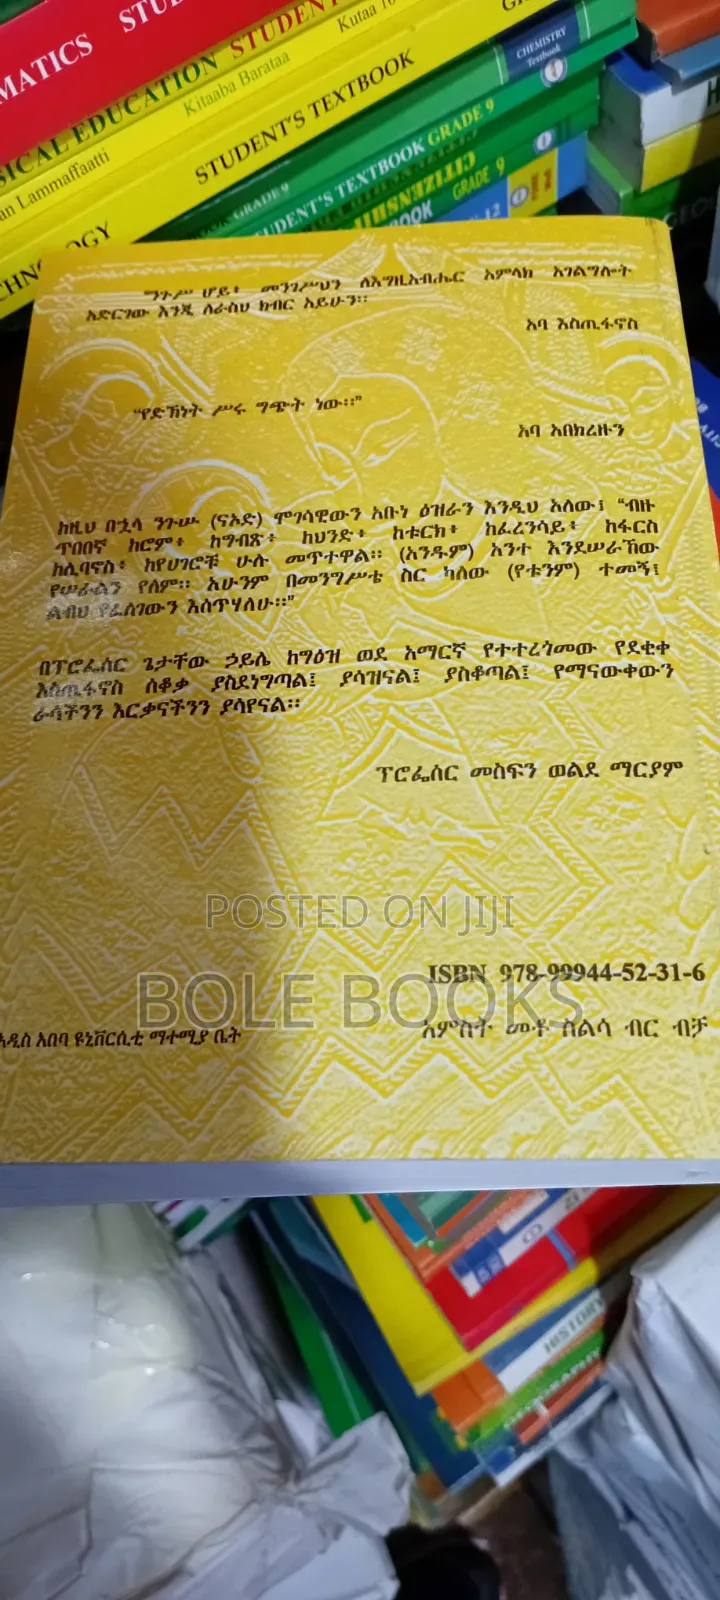 MATICS STUD
Kutaa 10
SICAL EDUCATION STUDENT
Kitaaba Barataa
an Lammaffaatti
STUDENT'S TEXTBOOK
CHEMISTRY
Textbook
BOOK GRADE 9
STUDENT'S TEXTBOOK GRADE 9
CITIZENSHIP
GRADE 9
ንጉሥ ሆይ፥ መንግሥህን ለእግዚአብሔር አምላክ አገልግሎት
አድርገው እንጂ ለራስህ ክብር አይሁን።
አባ እስጢፋኖስ
“የድኽነት ሥሩ ግጭት ነው።”
አባ አበክረዙን
ከዚህ በኋላ ንጉሡ (ናኦድ) ሞገሳዊውን አቡነ ዕዝራን እንዲህ አለው፤ “ብዙ
ጥበበኛ ከሮም፥ ከግብጽ፥ ከህንድ፥ ከቱርክ፥ ከፈረንሳይ፥ ከፋርስ
ከሊባኖስ፥ ከየሀገሮቹ ሁሉ መጥተዋል። (አንዱም) አንተ እንደሠራኸው
የሠራልን የለም። አሁንም በመንግሥቴ ስር ካለው (የቱንም) ተመኝ፤
ልብህ የፈለገውን እሰጥሃለሁ።”
በፕሮፌሰር ጌታቸው ኃይሌ ከግዕዝ ወደ አማርኛ የተተረጎመው የደቂቀ
እስጢፋኖስ ሰቆቃ ያስደነግጣል፤ ያሳዝናል፤ ያስቆጣል፤ የማናውቀውን
ራሳችንን እርቃናችንን ያሳየናል።
ፕሮፌሰር መስፍን ወልደ ማርያም
POSTED ON JIJI
ISBN 978-99944-52-31-6
BOLE BOOKS
አዲስ አበባ ዩኒቨርሲቲ ማተሚያ ቤት
አምስት መቶ ስልሳ ብር ብቻ
HISTORY
GEOGRAPHY